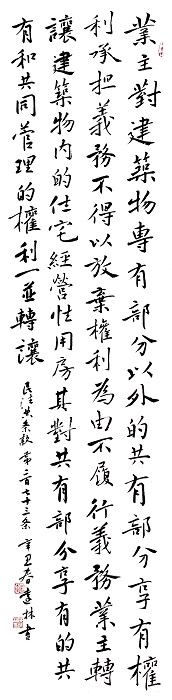 業主對建築物專有部分以外的共有部分享有權
利承担義務不得以放棄權利為由不履行義務業主轉
讓建築物内的住宅經營性用房其對共有部分享有的共
有和共同管理的權利一並轉讓
民法典条款第二百七十三条 辛丑春建林書